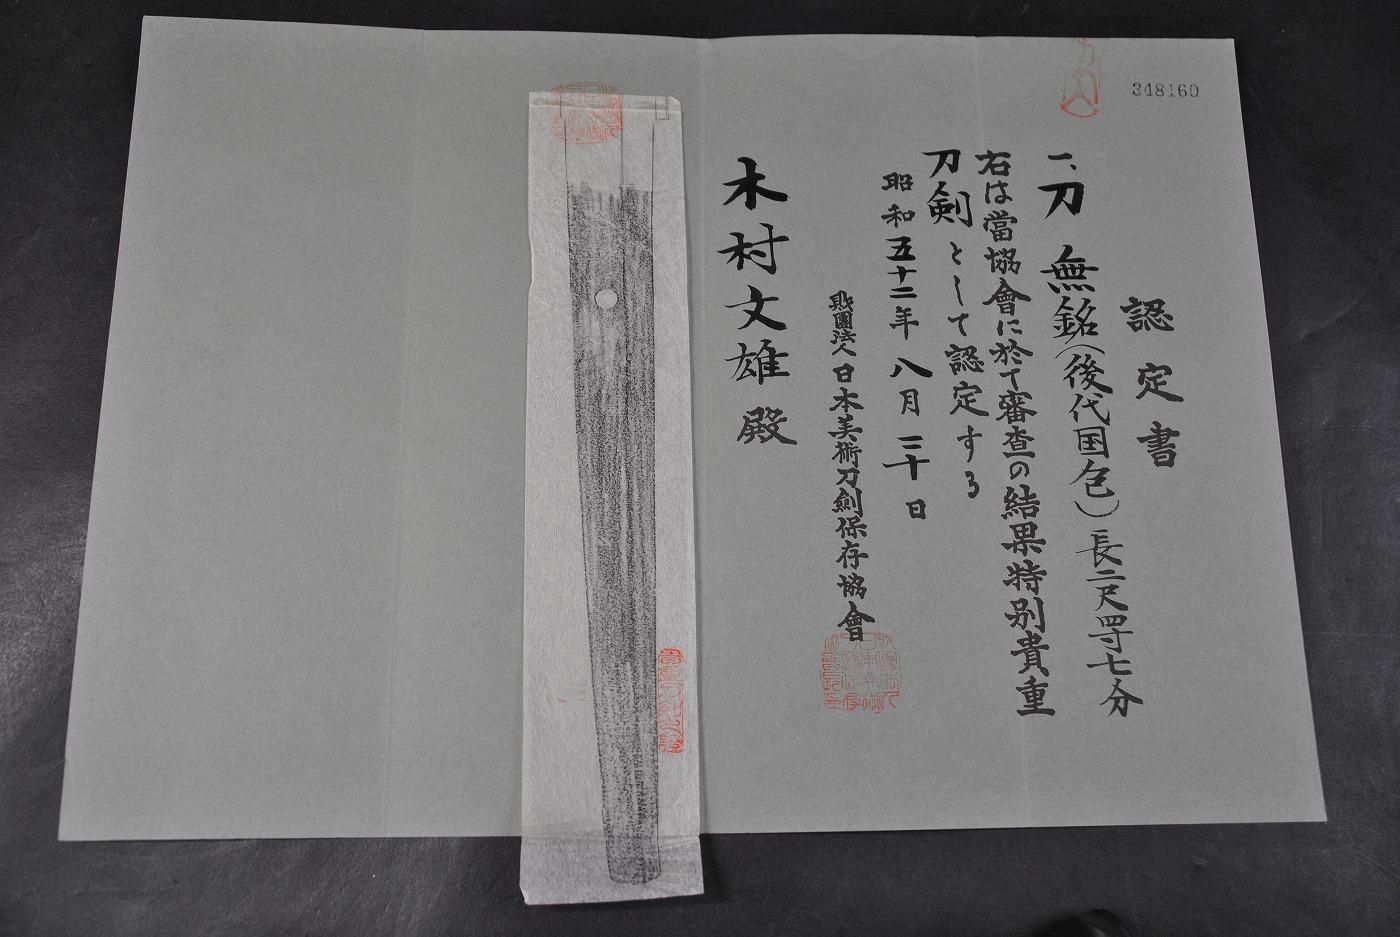 348160
認定書
一、刀 無銘(後代国包)長二尺四寸七分
右は當協會に於て審査の結果特別貴重
刀剣として認定する
昭和五十二年八月三十日
財團法人日本美術刀剣保存協會
木村文雄殿